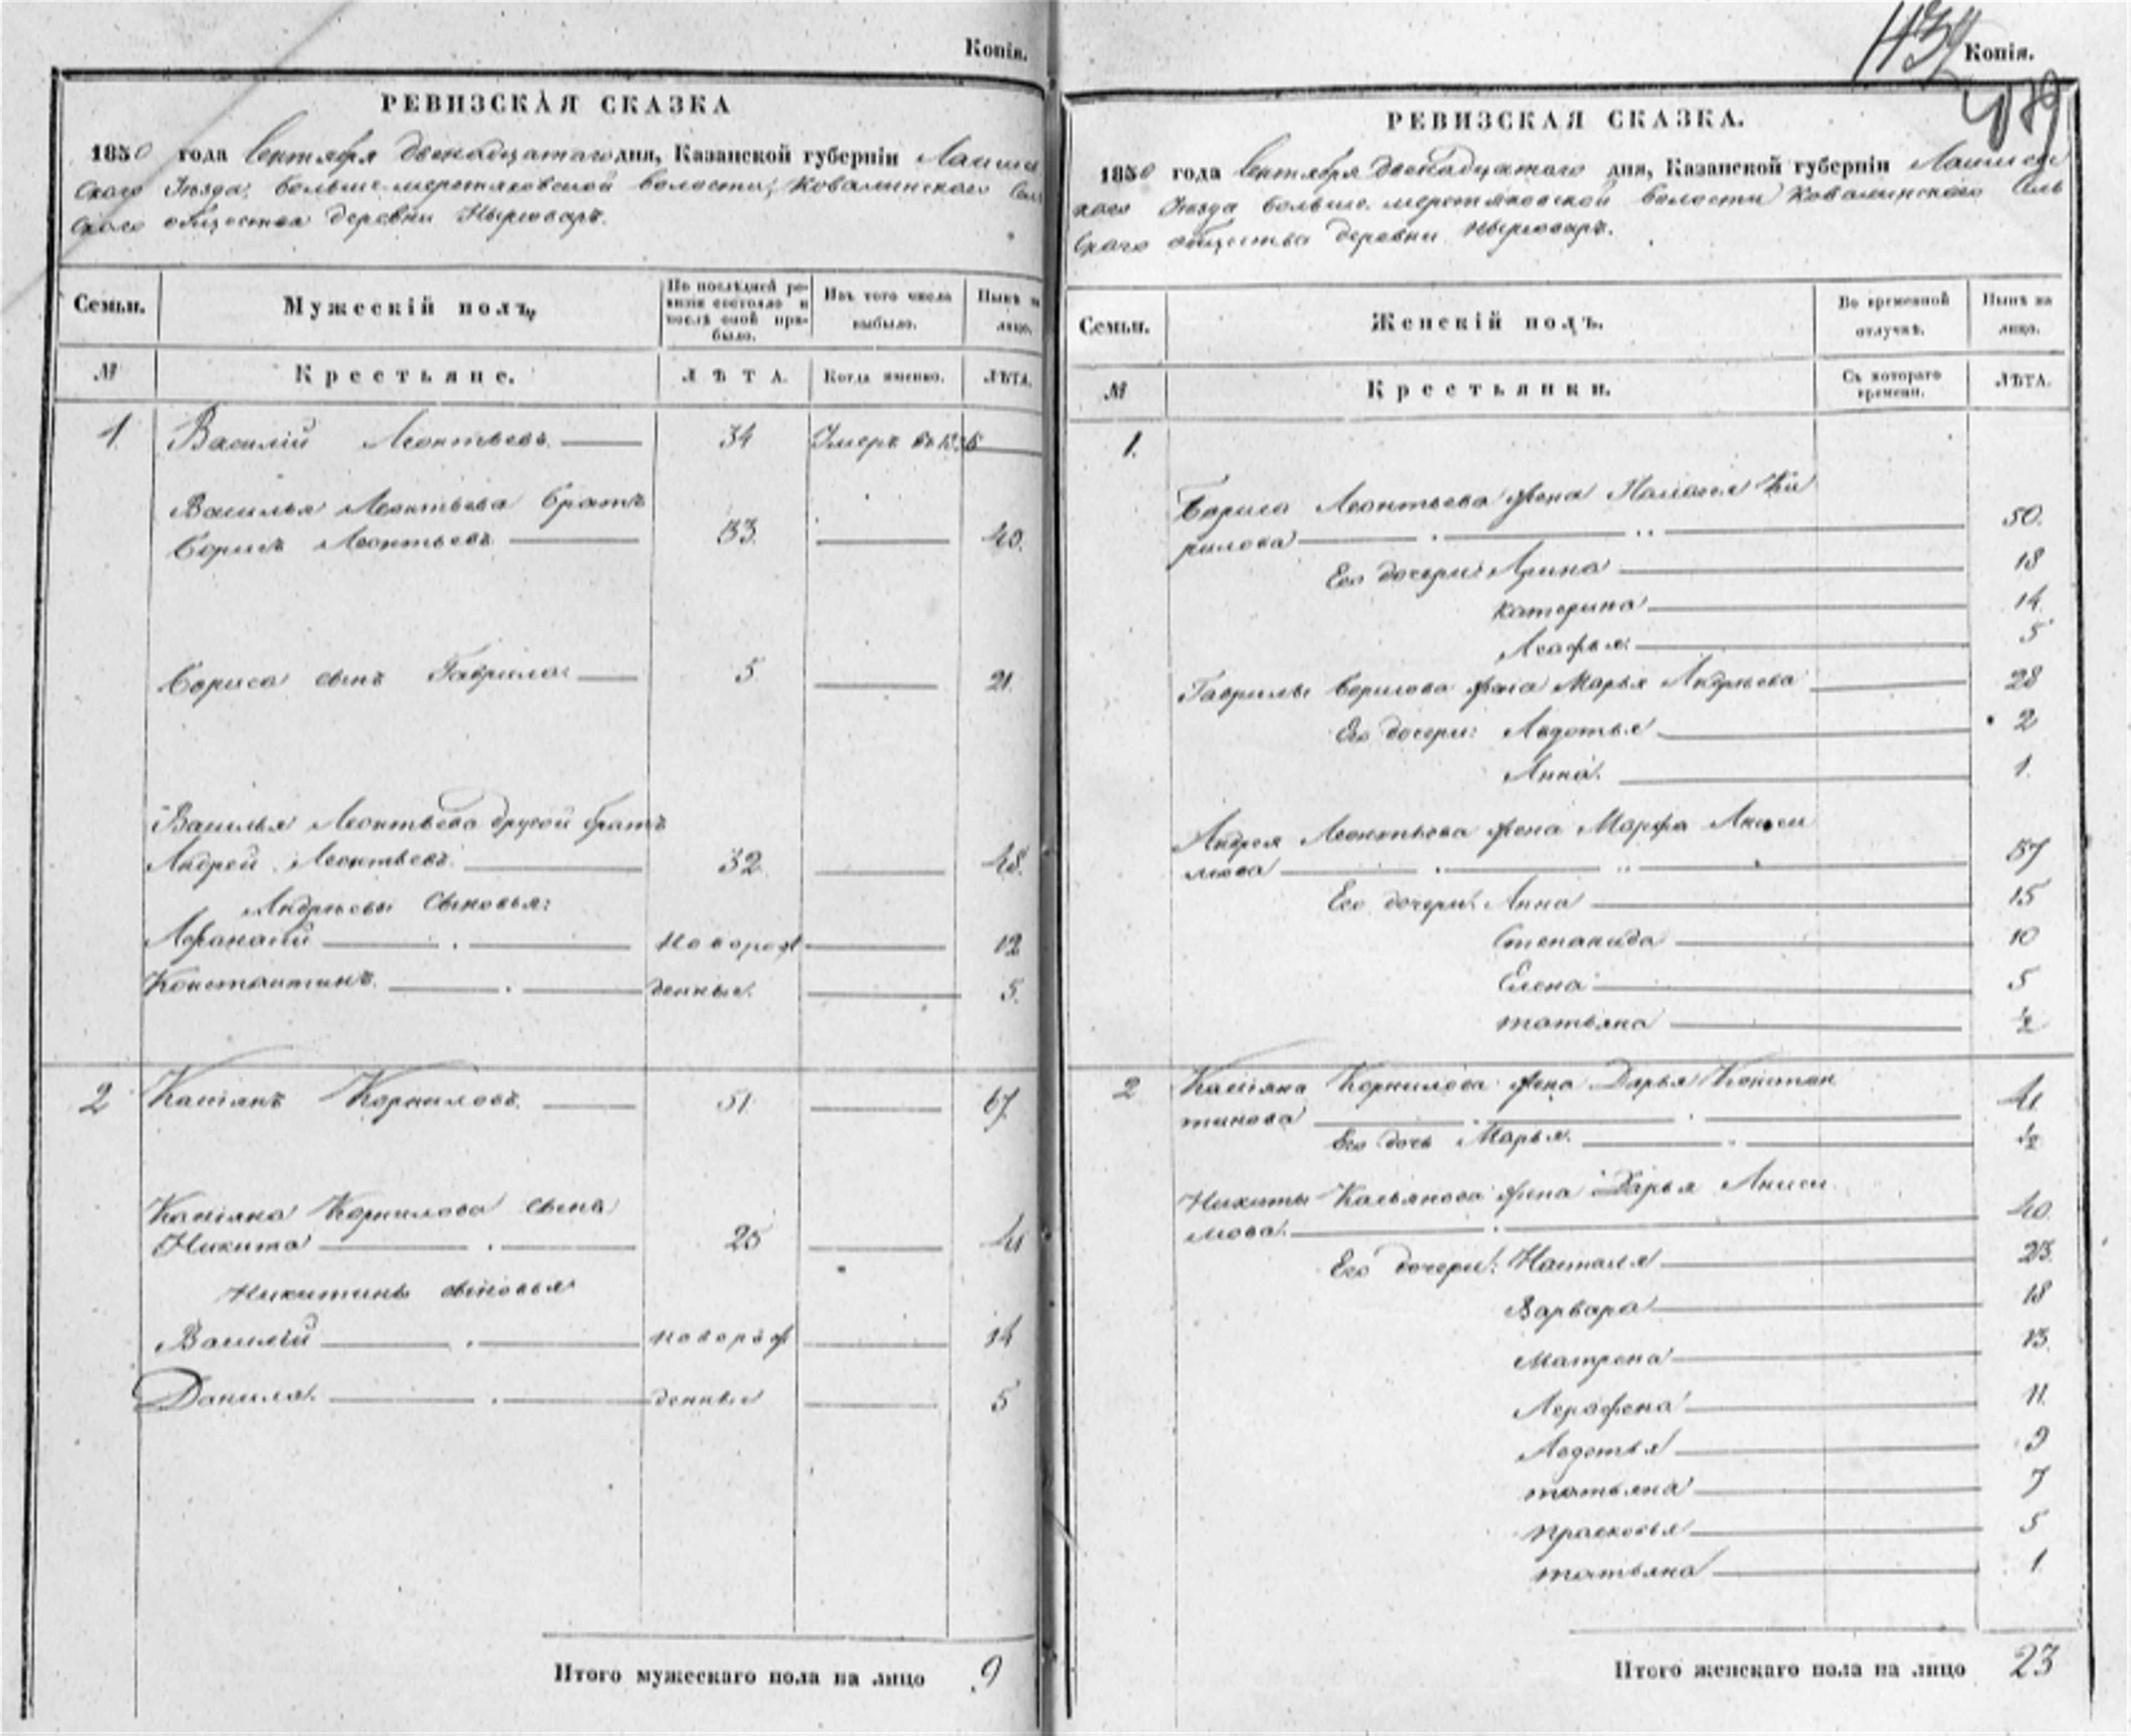 Копія.
РЕВИЗСКАЯ СКАЗКА
1850 года Сентября двенадцатаго дня, Казанской губерніи Лаише
скаго Уезда, больше-меретяковской волости, Ковалинскаго Сель
скаго общества деревни Ныртоваръ.
Семьи.
Мужескій полъ,
По послѣдней ре-
визіи состояло и
послѣ оной при-
было.
Изъ того числа
выбыло.
Нынѣ на
лицо.
№
Крестьяне.
ЛѢТА.
Когда именно.
ЛѢТА.
1 Василій Леонтьевъ 34 Умеръ въ
Василья Леонтьева братъ
Борисъ Леонтьевъ 33
Бориса сынъ Гаврило 5 21
Василья Леонтьева другой братъ
Андрей Леонтьевъ 32 48
Андреевы сыновья:
Афанасій новорож 12
Константинъ денные 5
2 Касіянъ Корниловъ 51 67
Касіяна Корнилова сынъ
Никита 25 41
Никитины сыновья
Василій новорож 14
Данила денные 5
Итого мужескаго пола на лицо 9
Копія.
РЕВИЗСКАЯ СКАЗКА.
1850 года Сентября двенадцатаго дня, Казанской губерніи Лаишев
скаго Уезда больше-меретяковской волости Ковалинскаго Сель
скаго общества деревни Ныртоваръ.
Семьи.
Женскій полъ.
Во временной
отлучкѣ.
Нынѣ на
лицо.
№
Крестьянки.
Съ котораго
времени.
ЛѢТА.
1.
Бориса Леонтьева жена Ки
рилова 50
Его дочери: Арина 18
Катерина 14
Агафья 5
Гаврилы Борисова жена Марья Андреева 28
Его дочери: Авдотья 2
Анна 1
Андрея Леонтьева жена Марфа Аниси
мова 37
Его дочери: Анна 15
Степанида 10
Елена 5
татьяна ½
2 Касіяна Корнилова жена Дарья Констан
тинова 41
Его дочь Марья ½
Никиты Касьянова жена Дарья Аниси
мова 40
Его дочери: Насталя 23
Варвара 18
Матрена 13
Аграфена 11
Авдотья 9
татьяна 7
прасковья 5
татьяна 1
Итого женскаго пола на лицо 23